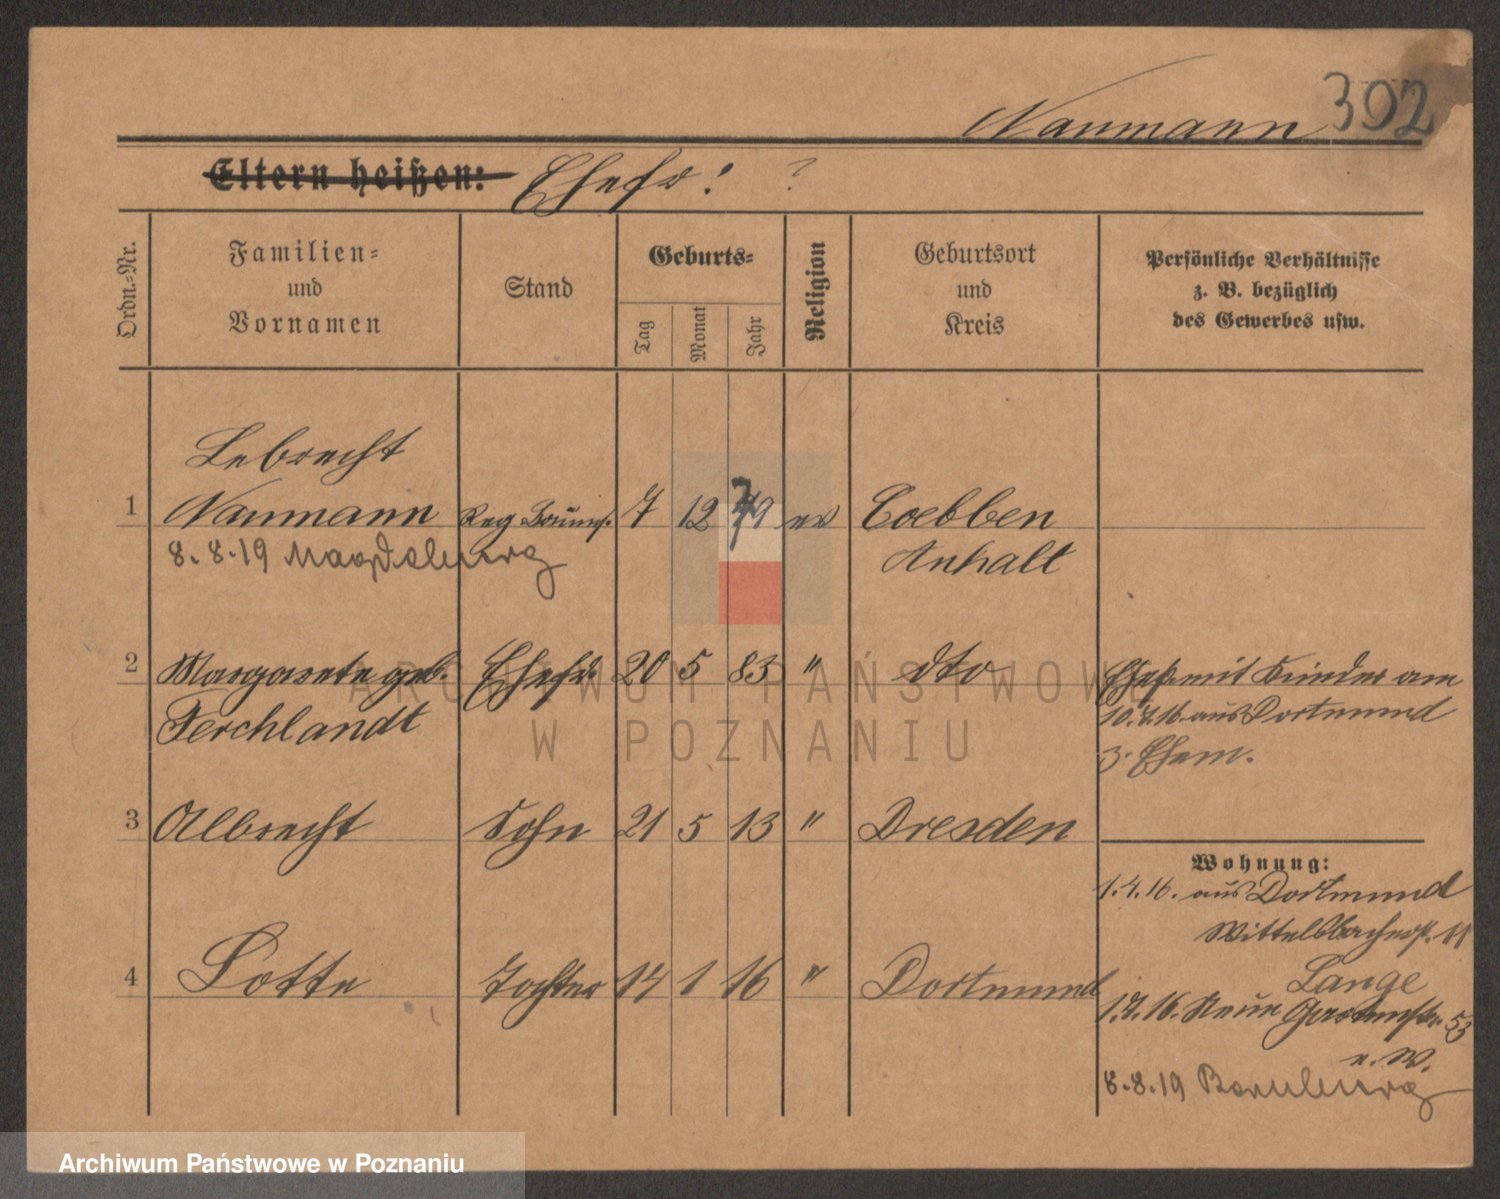 Naumann 392
Eltern heißen: Ehefr: ?
Ordn.-Nr.
Familien-
und
Vornamen
Stand
Geburts-
Tag
Monat
Jahr
Religion
Geburtsort
und
Kreis
Persönliche Verhältnisse
z. B. bezüglich
des Gewerbes usw.
Lebrecht
1 Naumann Reg 7 12 79 ev Coebben
8.8.19 Magdeburg Anhalt
2 Margarete geb. Ehefr. 20 5 83 " dto Ehefr mit Kinder am
Ferchlandt 10.7.16 aus Dortmund
z. Ehem.
3 Albrecht Sohn 21 5 13 " Dresden
Wohnung:
1.4.16. aus Dortmund
Wittelsbacherstr. 11
Lange
4 Lotte Tochter 17 1 16 " Dortmund
1.7.16. Neue Gartenstr. 53
n. W.
8.8.19 Bernburg
ARCHIWUM PAŃSTWOW
W POZNANIU
Archiwum Państwowe w Poznaniu